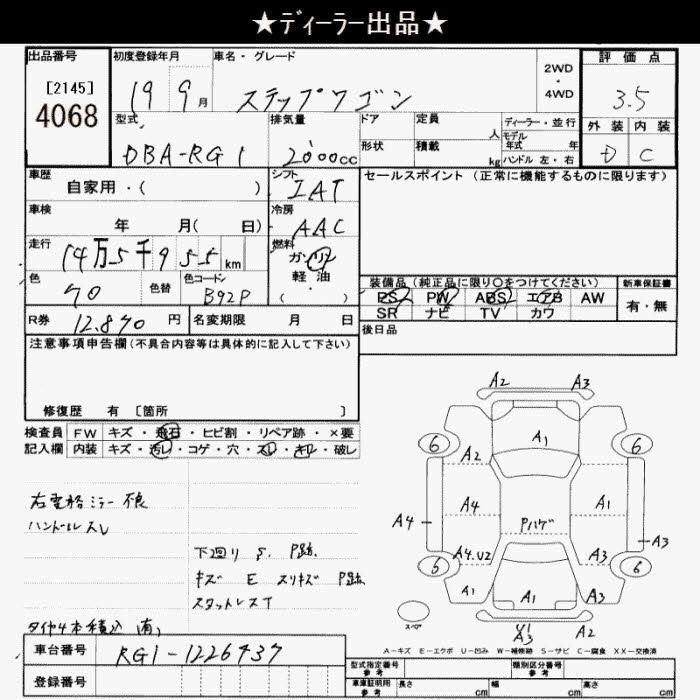 ★ディーラー出品★
出品番号 初度登録年月 車名・グレード 2WD・4WD 評価点
[2145]
4068
19 9月 ステップワゴン 3.5
外装 内装
D C
型式 排気量 ドア 定員 人 ディーラー・並行
モデル年式 年
DBA-RG1 2000cc 形状 積載 kg ハンドル 左・右
車歴 シフト セールスポイント (正常に機能するものに限ります)
自家用・( ) IAT
車検 冷房
年 月( 日) AAC
走行 燃料
14万5千955km ガソリン・軽油・( )
色 色替 色コード 装備品 (純正品に限り〇をつけてください) 新車保証書
70 B92P PS PW ABS エアB AW 有・無
SR ナビ TV カワ
R券 12,870円 名変期限 月 日 後日品
注意事項申告欄 (不具合内容等は具体的に記入して下さい)
修復歴 有 〔箇所 〕
検査員 FW キズ・飛石・ヒビ割・リペア跡・×要
記入欄 内装 キズ・汚れ・コゲ・穴・スレ・キレ・破レ
右電格ミラー不良
ハンドルスレ
下廻り S. P跡.
キズ E スリキズ P跡.
スタットレスT
タイヤ4本積込 有)
A2 A3
6 A1 6
A2
A4 A4 Pハゲ A1 A3
A4.U2 A3
6 6
A1 A1
スペア Y1 A3 A2
A-キズ E-エクボ U-凹み W-補修跡 S-サビ C-腐食 XX-交換済
車台番号 RG1-1226437
型式指定番号 参考 類別区分番号 参考
登録番号 車庫証明用 参考 長さ cm 幅 cm 高さ cm